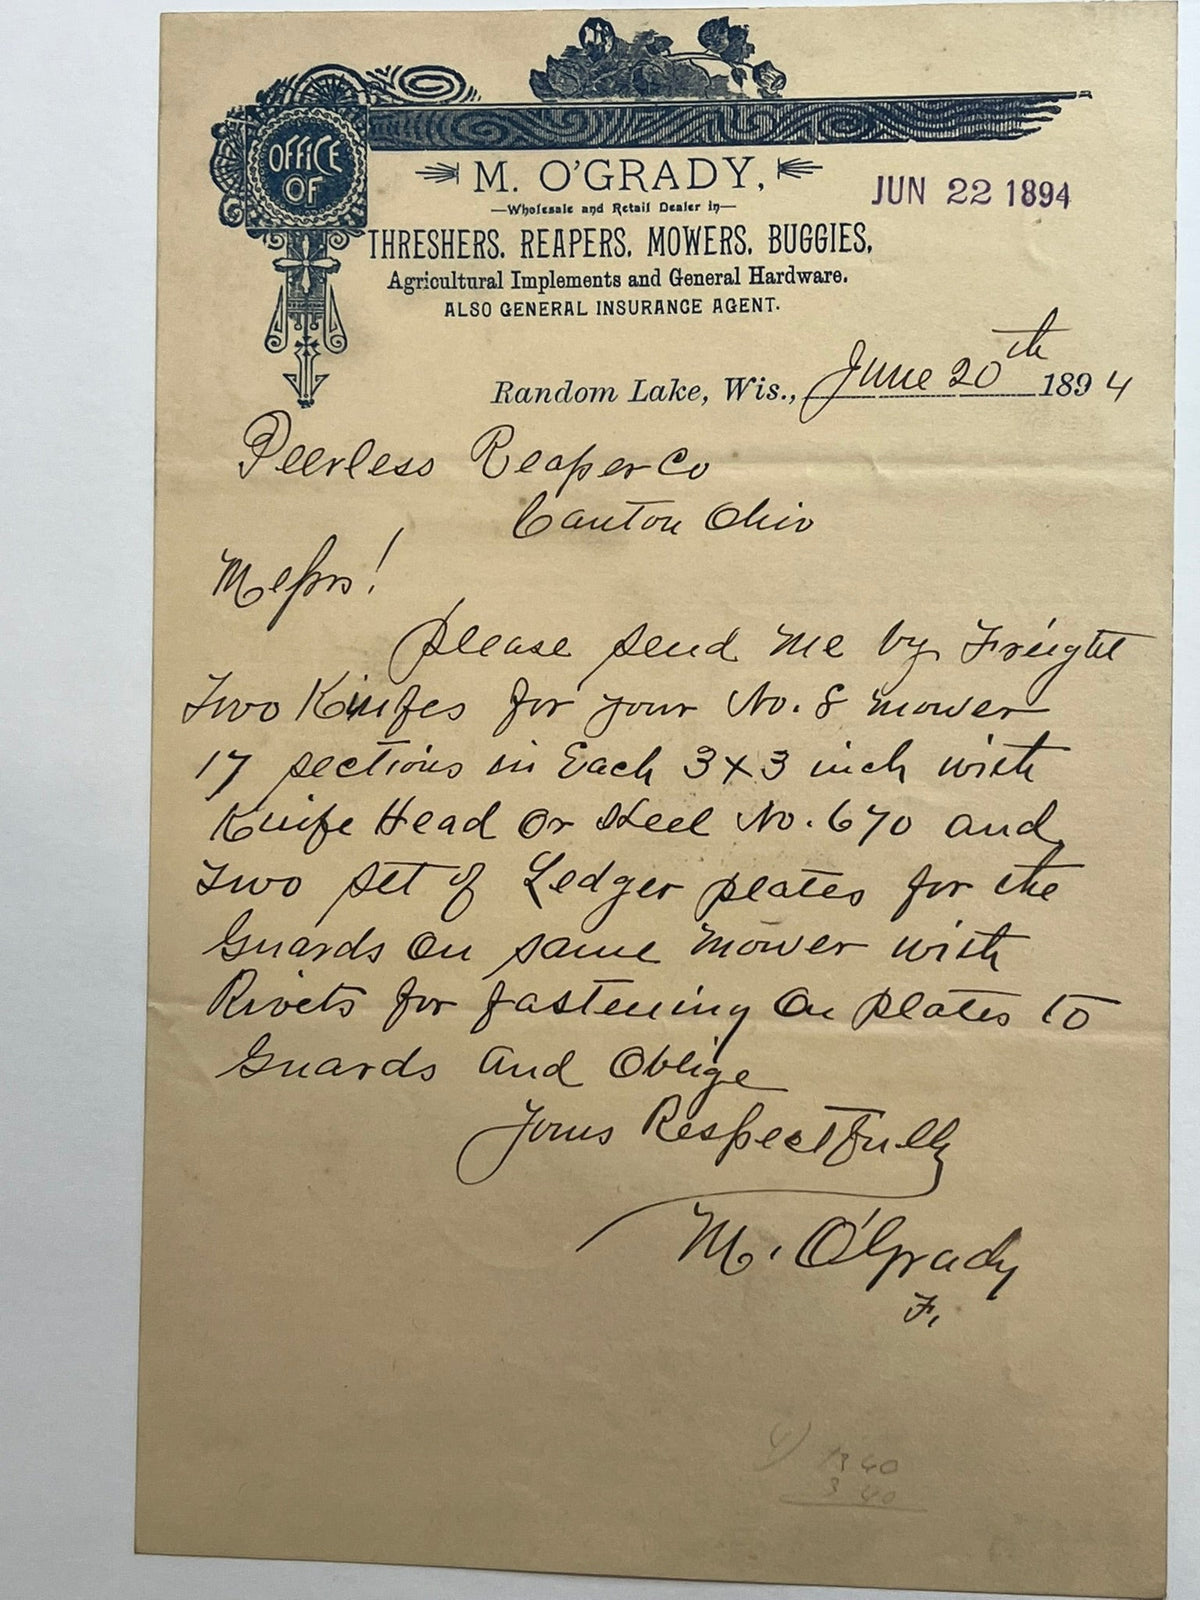 OFFICE
OF
M. O'GRADY,
—Wholesale and Retail Dealer in—
JUN 22 1894
THRESHERS, REAPERS, MOWERS, BUGGIES,
Agricultural Implements and General Hardware.
ALSO GENERAL INSURANCE AGENT.
Random Lake, Wis., June 20th 1894
Peerless Reaper Co
Canton Ohio
Messrs!
please send me by Freight
Two Knifes for your No. 8 mower
17 sections in Each 3x3 inch with
Knife Head or Steel No. 670 and
Two set of Ledger plates for the
Guards on same mower with
Rivets for fastening on plates to
Guards and Oblige
Yours Respectfully
M. O'Grady
F.
3 40